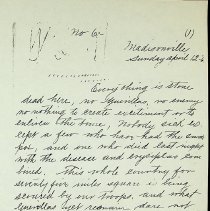 No 6 (1)
Madisonville
Sunday April 12th
Everything is stone
dead here, no guerillas, no enemy
no nothing to create excitement or to
enliven the time. Nobody sick ex
cept a few who have had the small
pox, and one who died last night
with the disease and erysipelas com
bined, this whole country for
seventy five miles square is been
scoured by our troops, and what
guerillas yet remain dare not